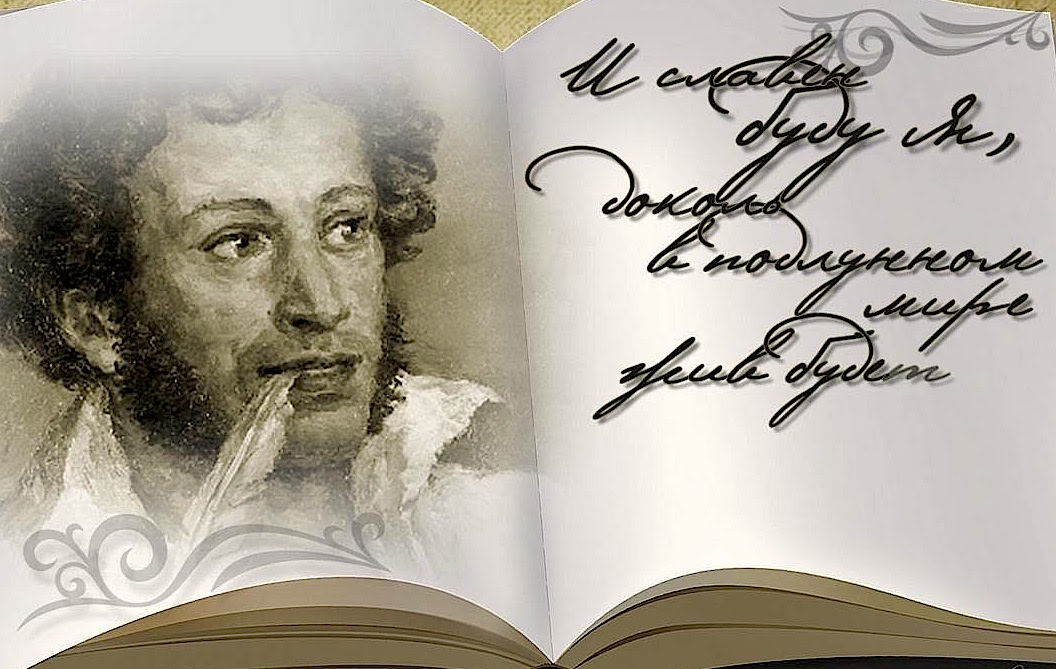 И славен
буду я,
доколь
в подлунном
мире
жив будет